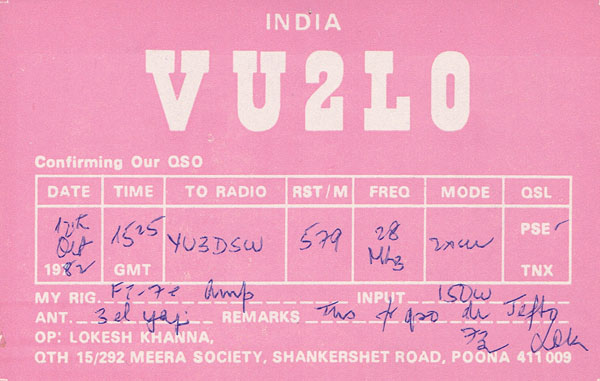 INDIA
VU2LO
Confirming Our QSO
DATE TIME TO RADIO RST/M FREQ MODE QSL
17th Oct 1982 1525 GMT YU3DSW 579 28 MHz 2xcw PSE ✓ TNX
MY RIG. FT-7e Amp INPUT 150W
ANT. 3 el yagi REMARKS Tns fr qso dr
OP: LOKESH KHANNA, 73
QTH 15/292 MEERA SOCIETY, SHANKERSHET ROAD, POONA 411 009